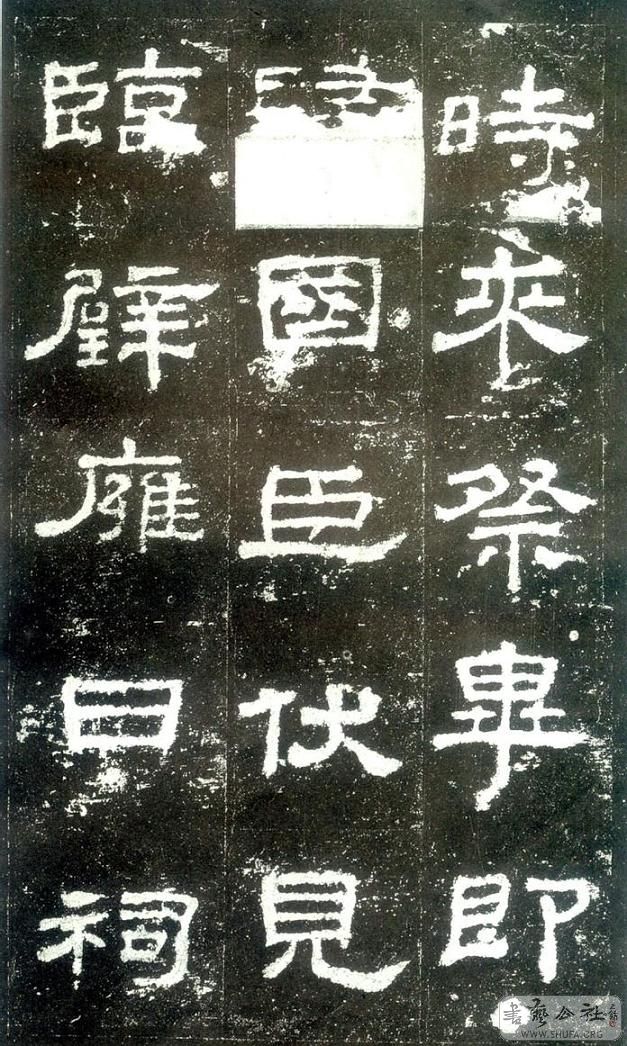 時來祭畢即
國臣伏見
臨辟雍日祠
書藝公社
WWW.SHUFA.ORG